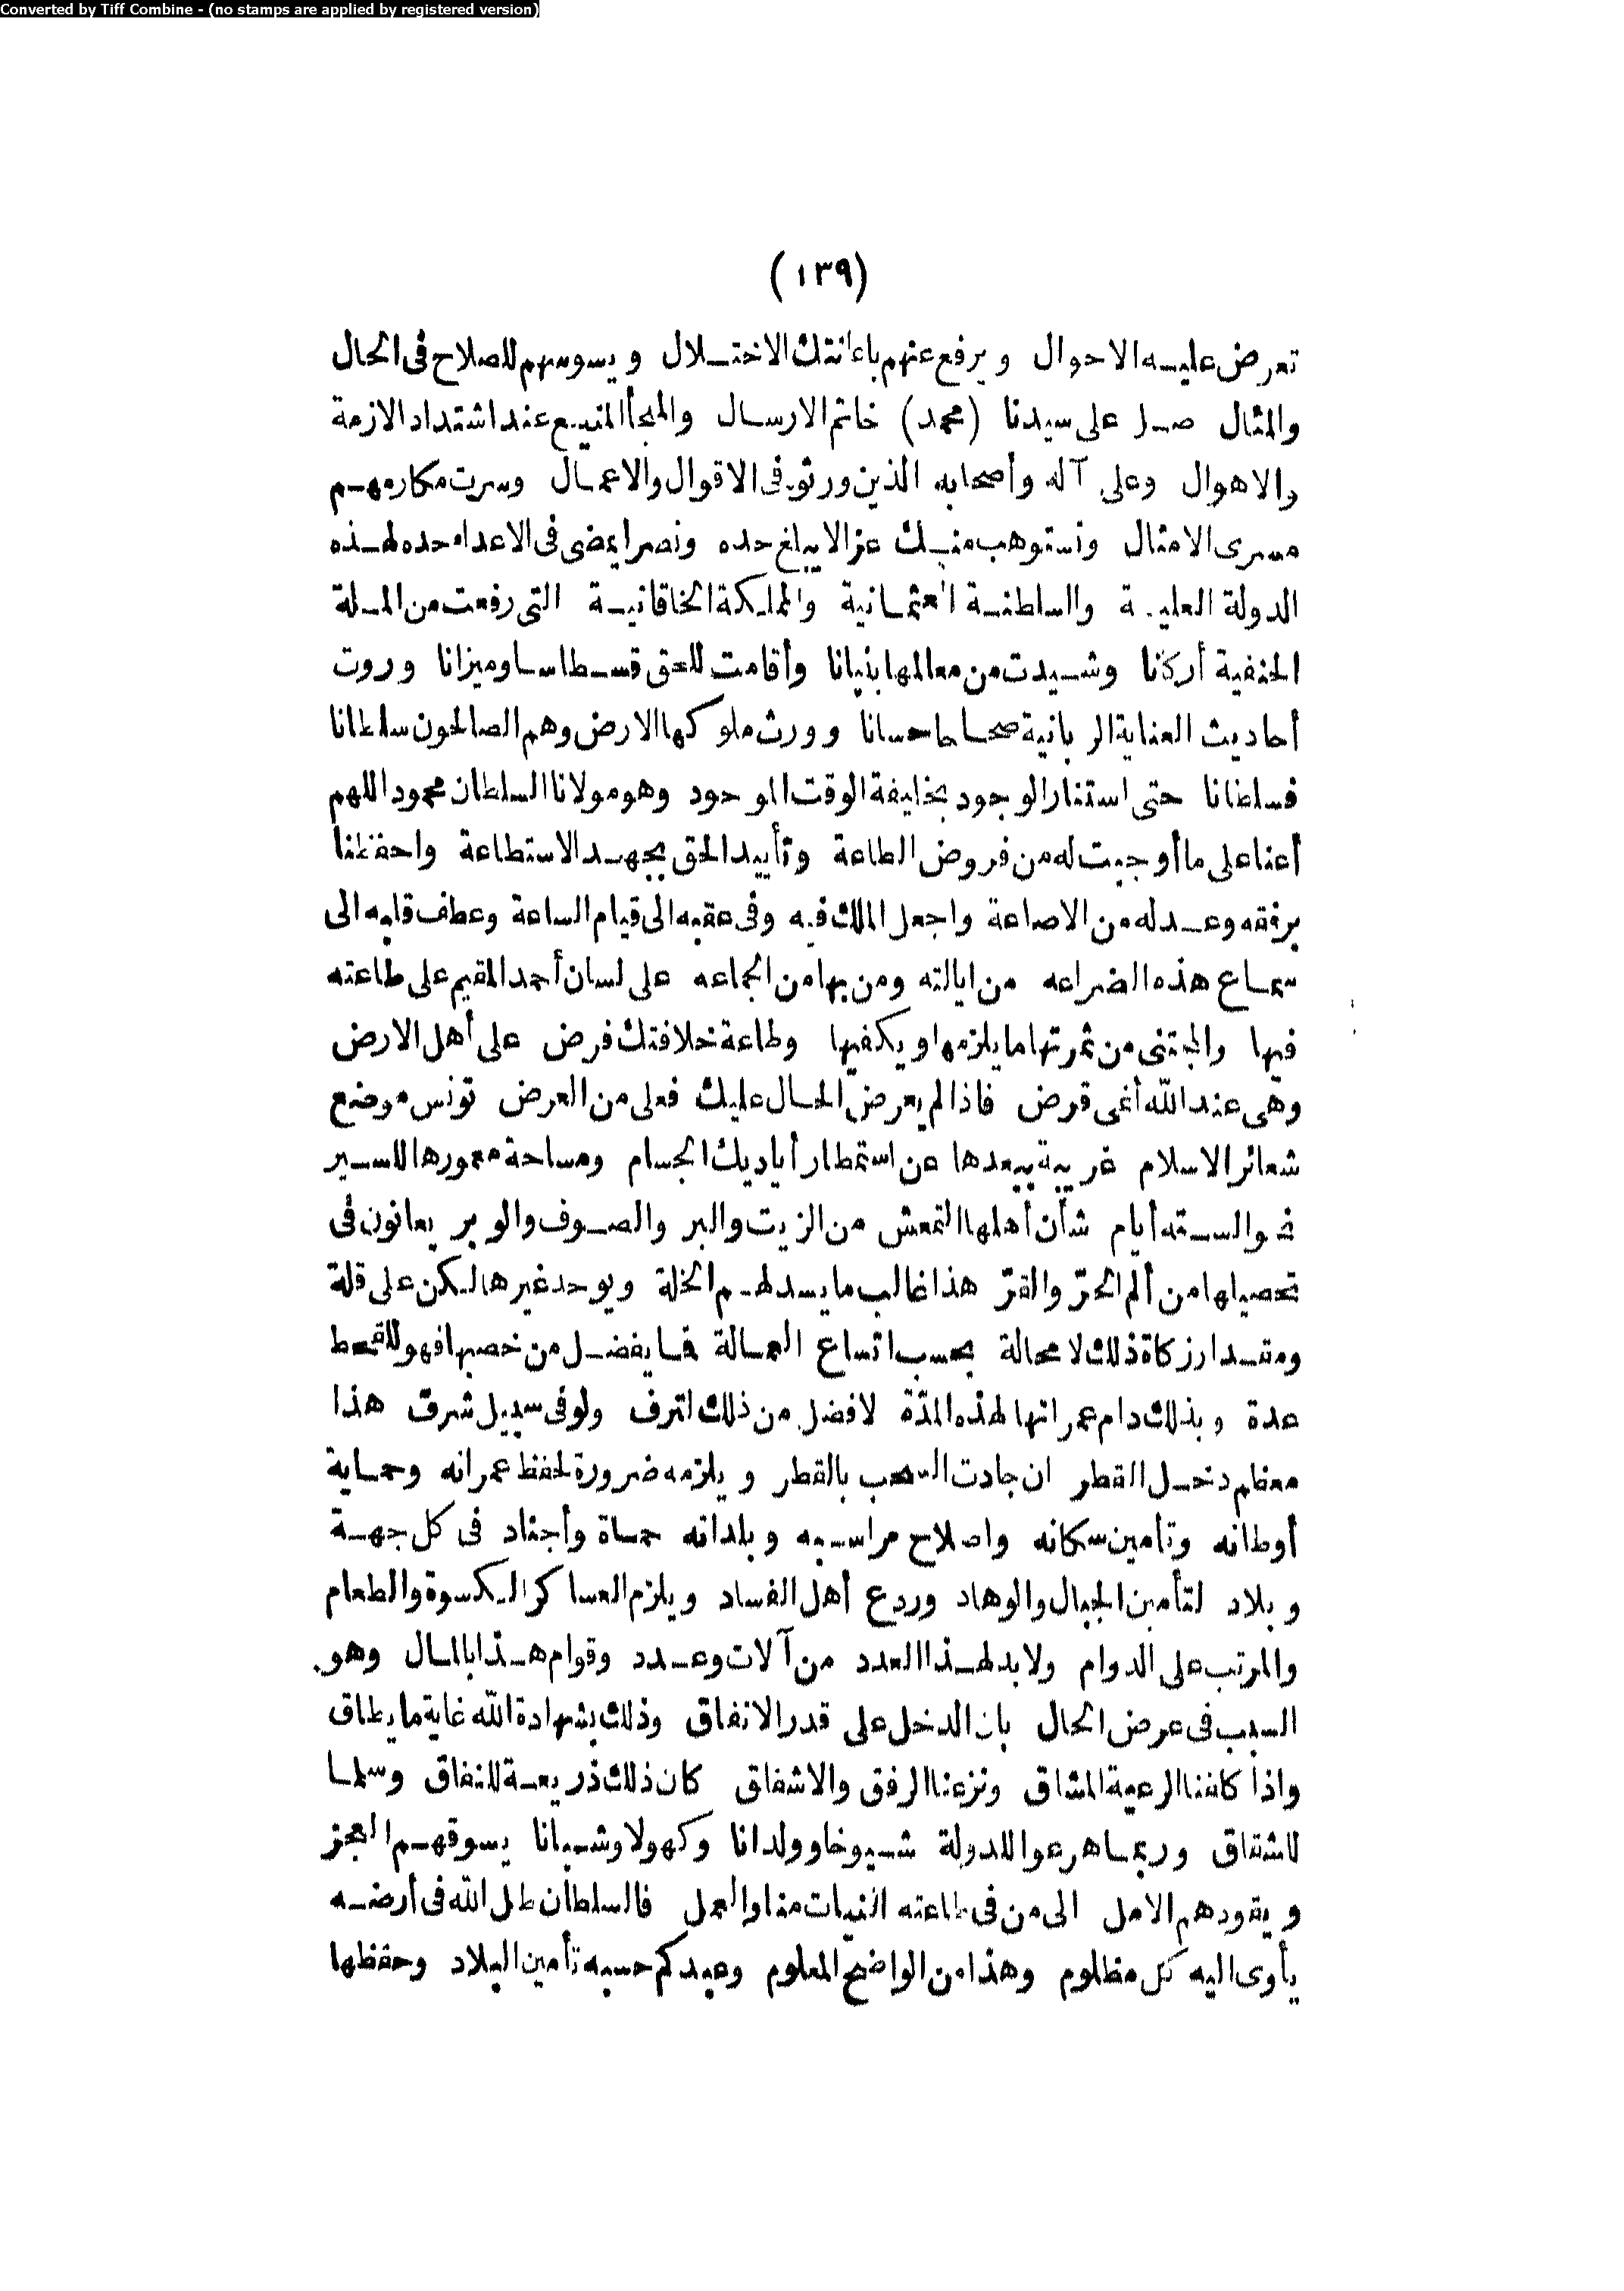 Converted by Tiff Combine - (no stamps are applied by registered version)
(١٣٩)
تعرض عليه الاحوال ويرفع عنهم باعانتك الاختلال ويسوسهم للصلاح فى الحال
والمثال صل على سيدنا (محمد) خاتم الارسال والملجأ المنيع عند اشتداد الازمة
والاهوال وعلى آله وأصحابه الذين ورثوه فى الاقوال والاعمال وسرت مكارمهم
مسرى الامثال ونستوهب منك عزا لا يبلغ حده ونصرا يمضى فى الاعداء حده لهذه
الدولة العلية والسلطنة العثمانية والمملكة الخاقانية التى رفعت من الملة
الحنفية أركانا وشيدت من معالمها بنيانا وأقامت للحق قسطاسا وميزانا وروت
أحاديث العناية الربانية صحاحا حسانا وورث ملوكها الارض وهم الصالحون سلطانا
فسلطانا حتى استنار الوجود بخليفة الوقت الموجود وهو مولانا السلطان محمود اللهم
أعنا على ما أوجبت له من فروض الطاعة وتأييد الحق بجهد الاستطاعة واحفظنا
برفقه وعدله من الاضاعة واجعل الملك فيه وفى عقبه الى قيام الساعة وعطف قلبه الى
سماع هذه الضراعه من ايالته ومن بها من الجماعه على لسان أحمد المقيم على طاعته
فيها والمجتنى من ثمرتها ما يلزمها ويكفيها وطاعة خلافتك فرض على أهل الارض
وهى عند الله أغى قرض فاذا لم يعرض الحال عليك فعلى من العرض تونس موضع
شعائر الاسلام غريبة ببعدها عن استمطار أياديك الجسام ومساحة معمورها للسير
نحو الستة أيام شأن أهلها التمعش من الزيت والبر والصوف والوبر يعانون فى
تحصيلها من ألم الحرّ والقرّ هذا غالب ما يسد لهم الخلة ويوجد غيرها لكن على قلة
ومقدار زكاة ذلك لا محالة بحسب اتساع العمالة فما يفضل من خصبها فهو للقحط
عدة وبذلك دام عمرانها لهذه المدّة لا فضل من ذلك لترف ولو فى سبيل شرق هذا
معظم دخل القطر ان جادت السحب بالقطر ويلزمه ضرورة لحفظ عمرانه وحماية
أوطانه وتأمين سكانه واصلاح مراسيه وبلدانه حماة وأجناد فى كل جهة
وبلاد لتأمين الجبال والوهاد وردع أهل الفساد ويلزم العساكر الكسوة والطعام
والمرتب على الدوام ولا بد لهذا العدد من آلات وعدد وقوام هذا بالمال وهو
السبب فى عرض الحال بان الدخل على قدر الانفاق وذلك بشهادة الله غاية ما يطاق
واذا كلفنا الرعية المشاق ونزعنا الرفق والاشفاق كان ذلك ذريعة للنفاق وسلما
للشقاق وربما هرعوا للدولة شيوخا وولدانا وكهولا وشبانا يسوقهم العجز
ويقودهم الامل الى من فى طاعته النيات منا والعمل فالسلطان ظل الله فى أرضه
يأوى اليه كل مظلوم وهذا من الواضح المعلوم وعبدكم حسبه تأمين البلاد وحفظها